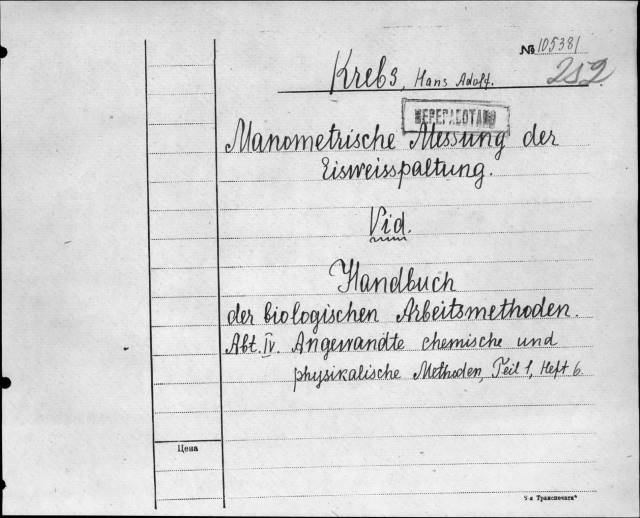 № 105381
Krebs, Hans Adolf.
252
ПЕРЕРАБОТАНО
Manometrische Messung der
Eisweisspaltung.
Vid.
Handbuch
der biologischen Arbeitsmethoden.
Abt. IV. Angewandte chemische und
physikalische Methoden, Teil 1, Heft 6.
Цена
5-я Транспечать